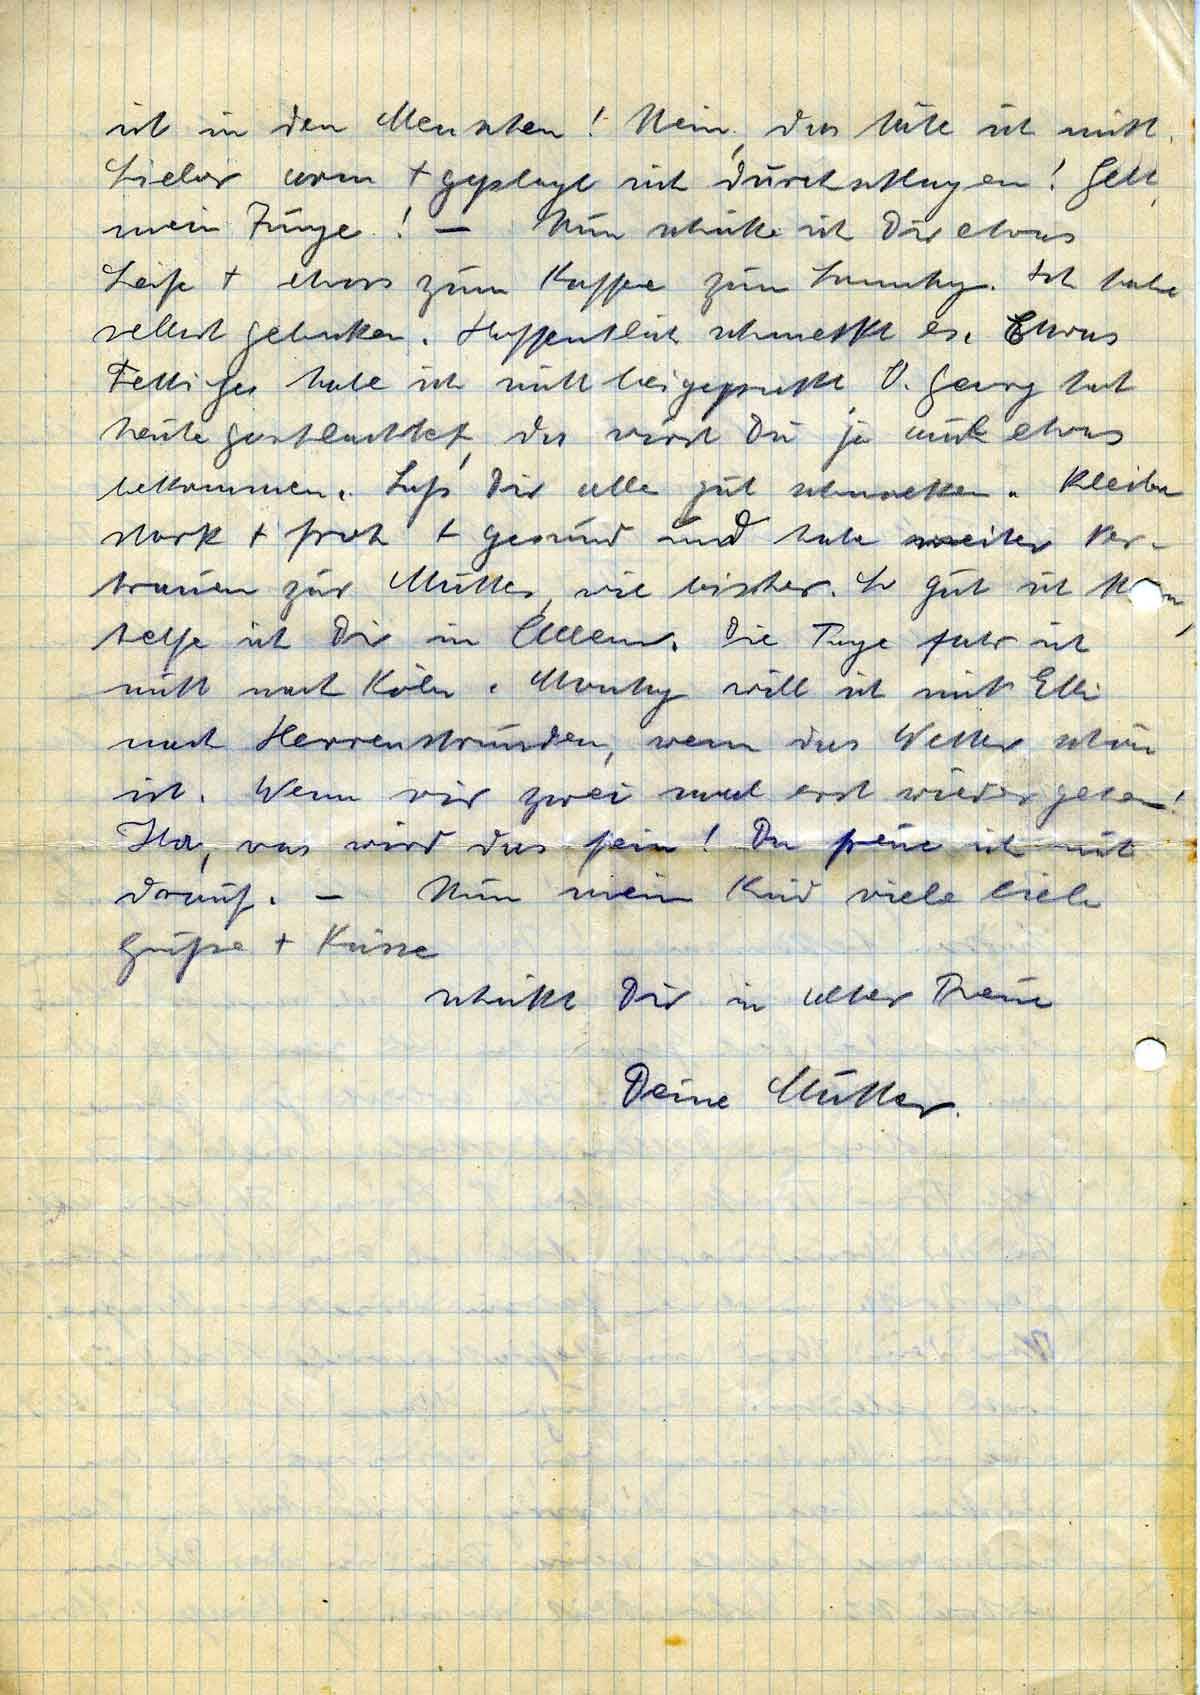 ist in den Menschen! Nein, das täte ich nicht.
Lieber arm + geplagt sich durchschlagen! Gell,
mein Junge! – Nun schicke ich Dir etwas
Seife + etwas zum Kaffee zum Sonntag. Ich habe
selbst gebacken. Hoffentlich schmeckt es. Etwas
Fettiges habe ich nicht beigepackt O. Georg hat
heute geschlachtet, da wirst Du ja auch etwas
bekommen. Laß Dir alle gut schmecken. Bleibe
stark + froh + gesund und habe weiter Ver-
trauen zur Mutter, wie bisher. So gut ich kann,
helfe ich Dir in Allem. Die Tage fahr ich
nicht nach Köln. Montag will ich mit Elli
nach Herrenstrunden, wenn das Wetter schön
ist. Wenn wir zwei mal erst wieder gehen!
Ha, was wird das fein! Da freue ich mich
drauf. – Nun mein Kind viele liebe
Grüße + Küsse
schickt Dir in alter Treue
Deine Mutter.